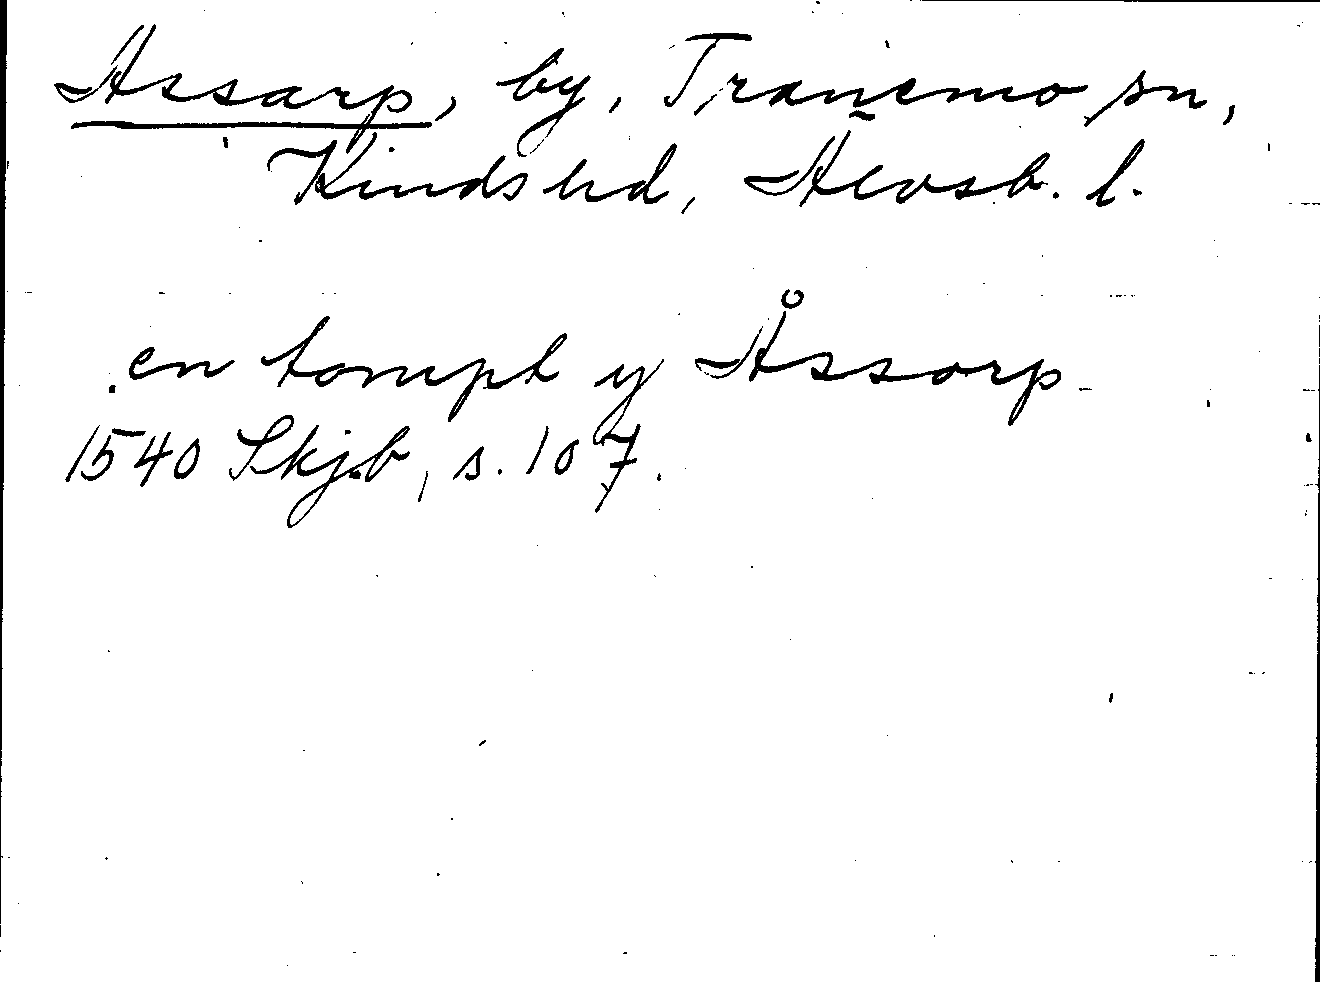 Assarp, by, Tranemo sn,
Kinds hd, Älvsb. l.
en tompt y Åssorp
1540 Skjb, s. 107.